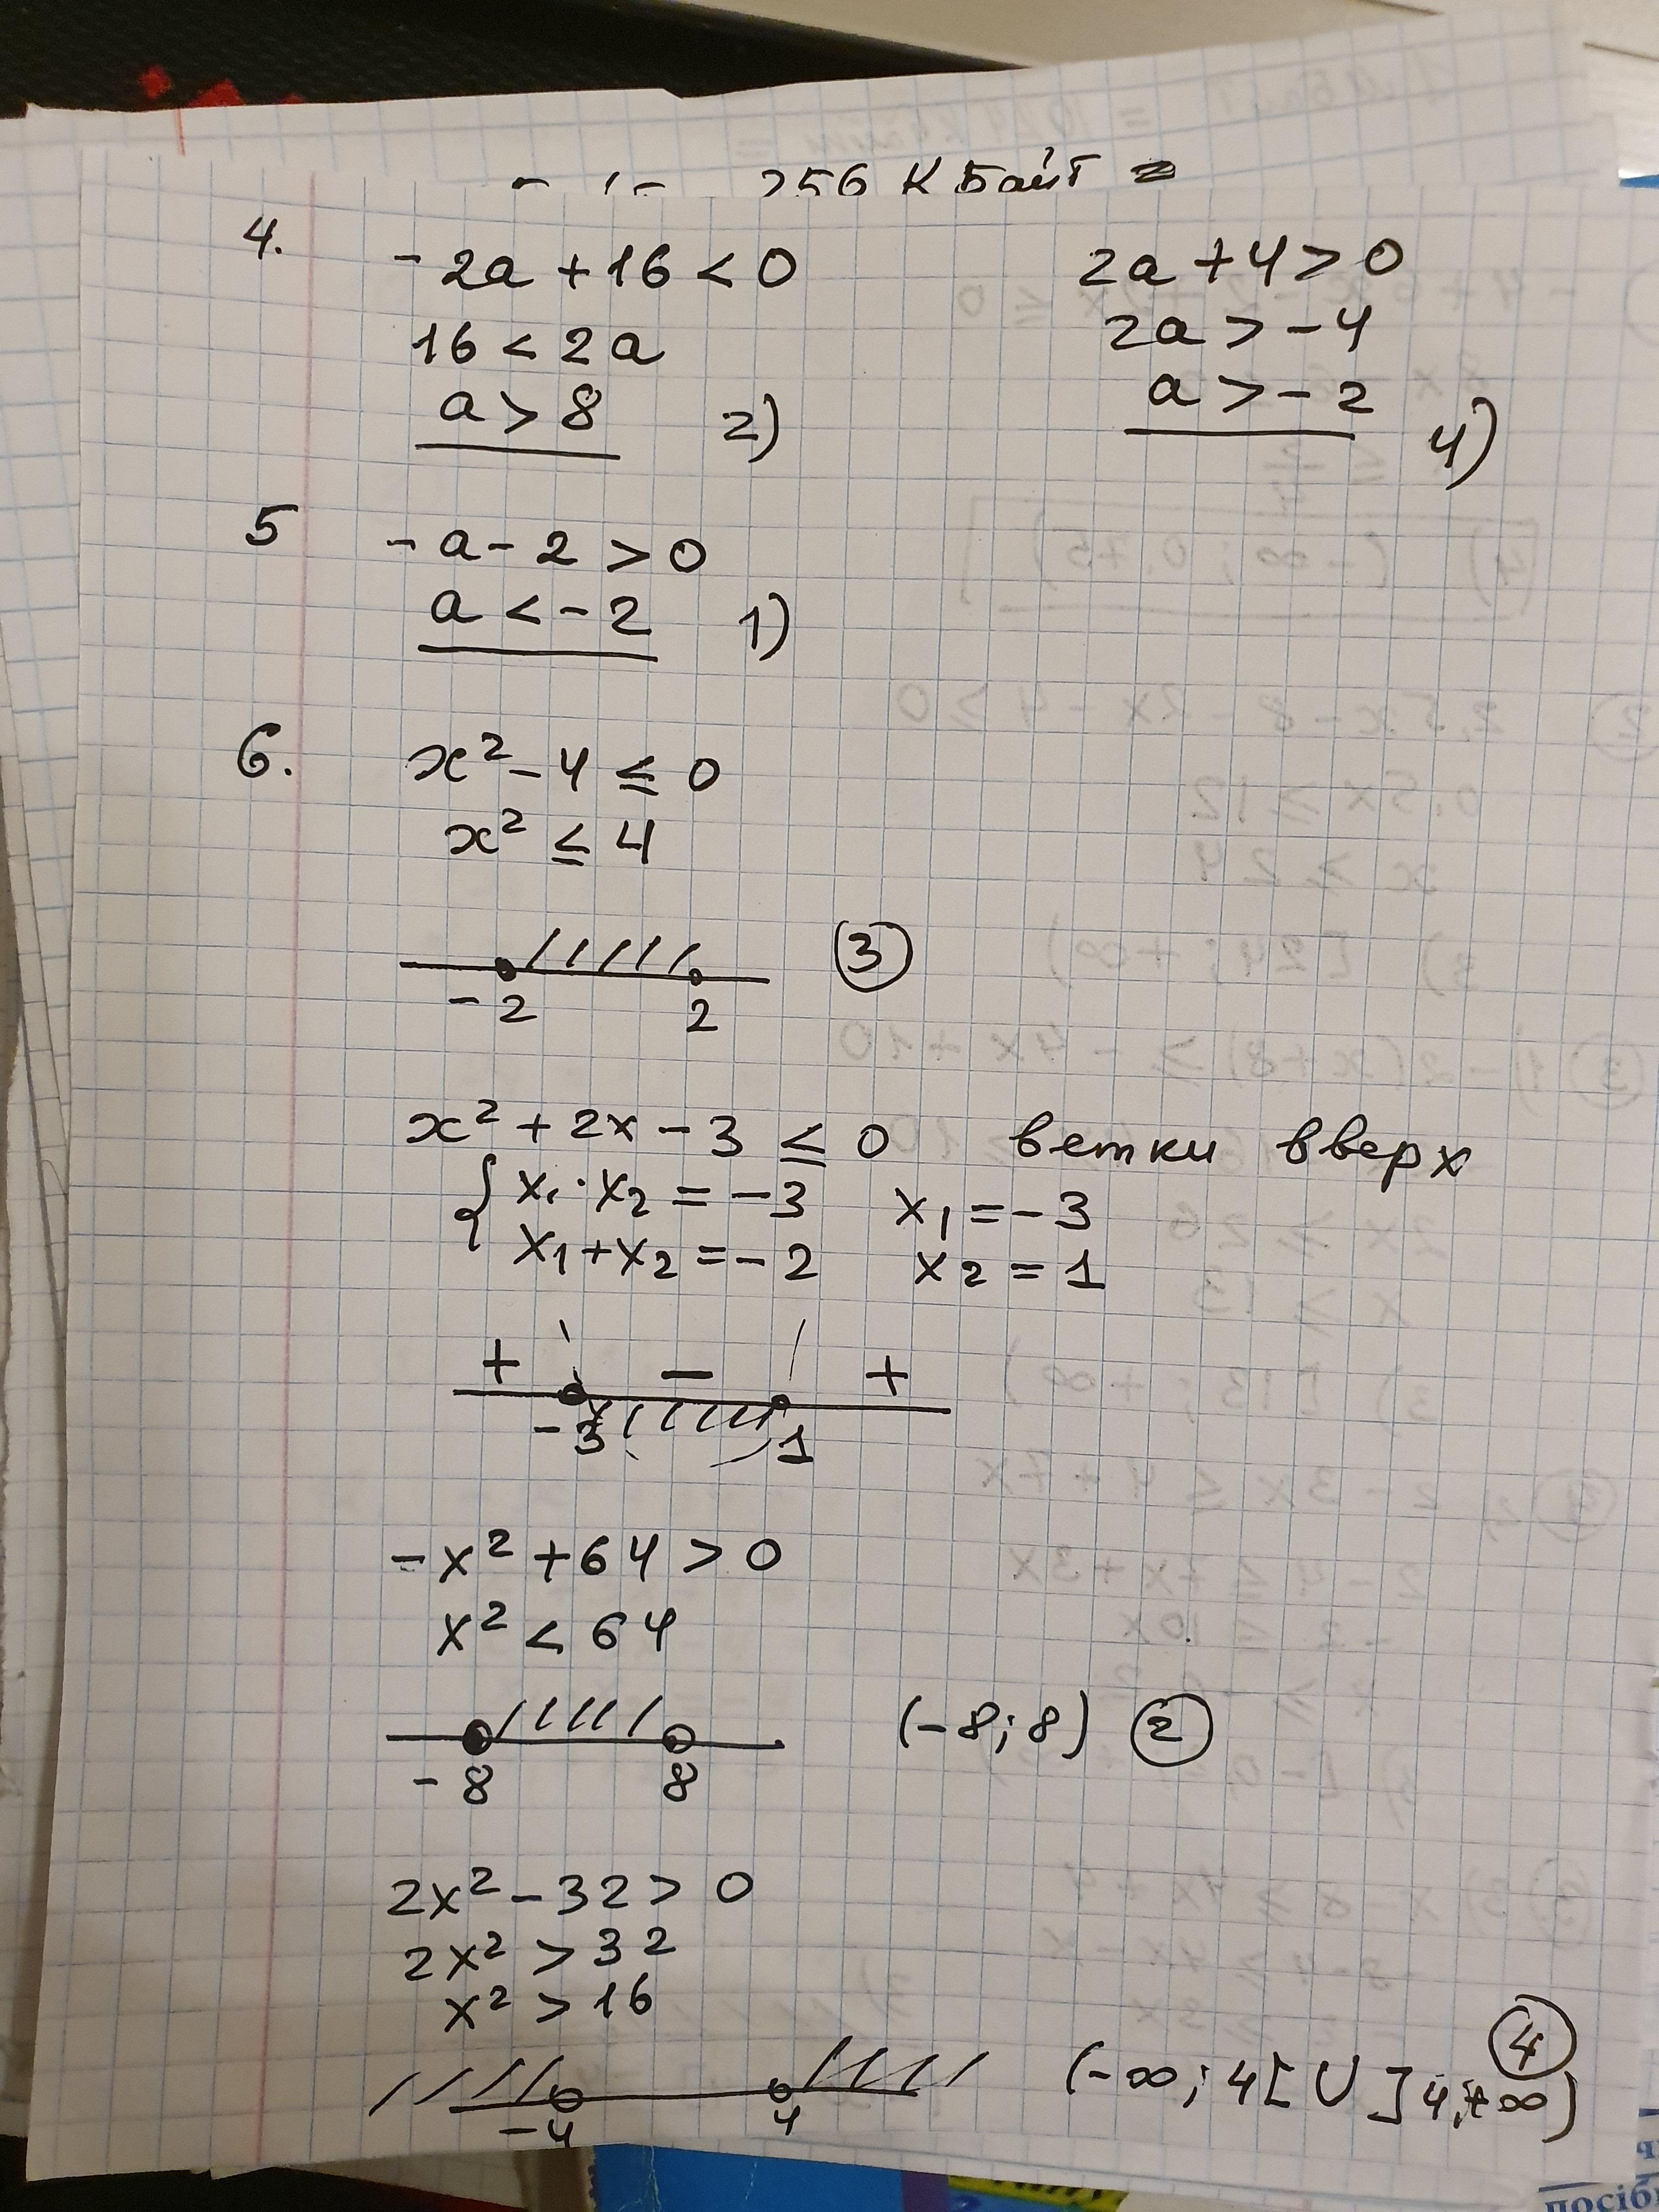 256 КБайт =
4. -2a + 16 < 0
16 < 2a
a > 8 2)
2a + 4 > 0
2a > -4
a > -2 4)
5 -a - 2 > 0
a < -2 1)
6. x² - 4 ≤ 0
x² ≤ 4
-2 2 3
x² + 2x - 3 ≤ 0 ветки вверх
{ x₁ · x₂ = -3 x₁ = -3
x₁ + x₂ = -2 x₂ = 1
+ − +
-3 1
-x² + 64 > 0
x² < 64
-8 8 (-8; 8) 2
2x² - 32 > 0
2x² > 32
x² > 16
4
-4 4 (-∞; 4[ U ]4; +∞)